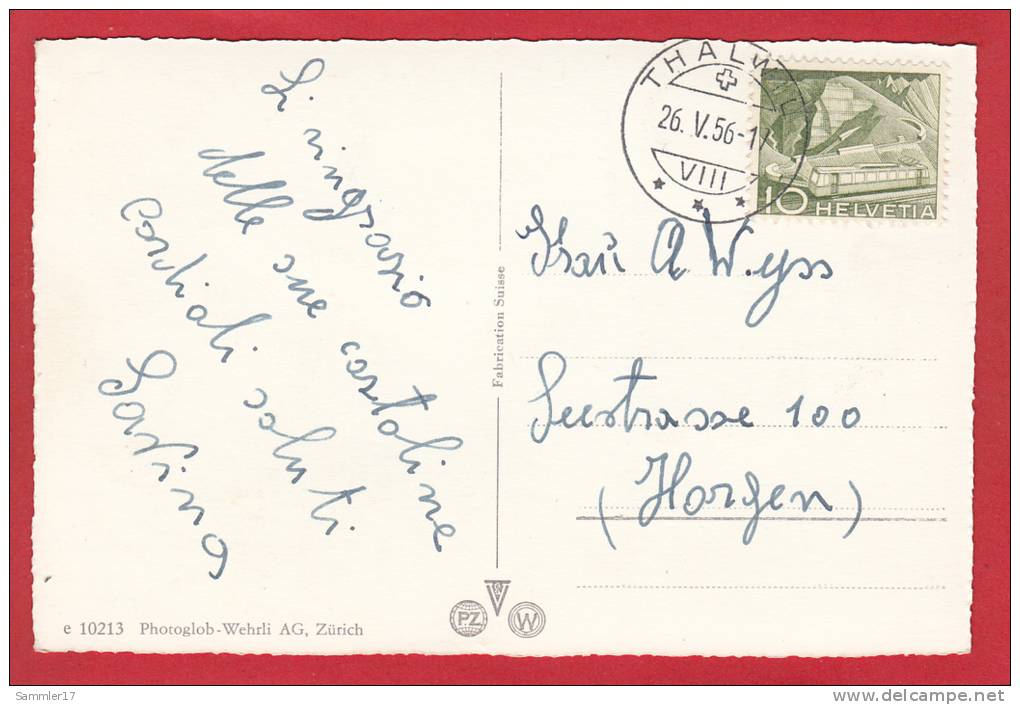 THALWIL
26. V. 56-17
VIII
10 HELVETIA
Li ringrazio
delle sue cartoline
cordiali saluti
Savina
Fabrication Suisse
Frau A Wyss
Seestrasse 100
(Horgen)
PZ
W
e 10213 Photoglob-Wehrli AG, Zürich
Sammler17
delcampe.net